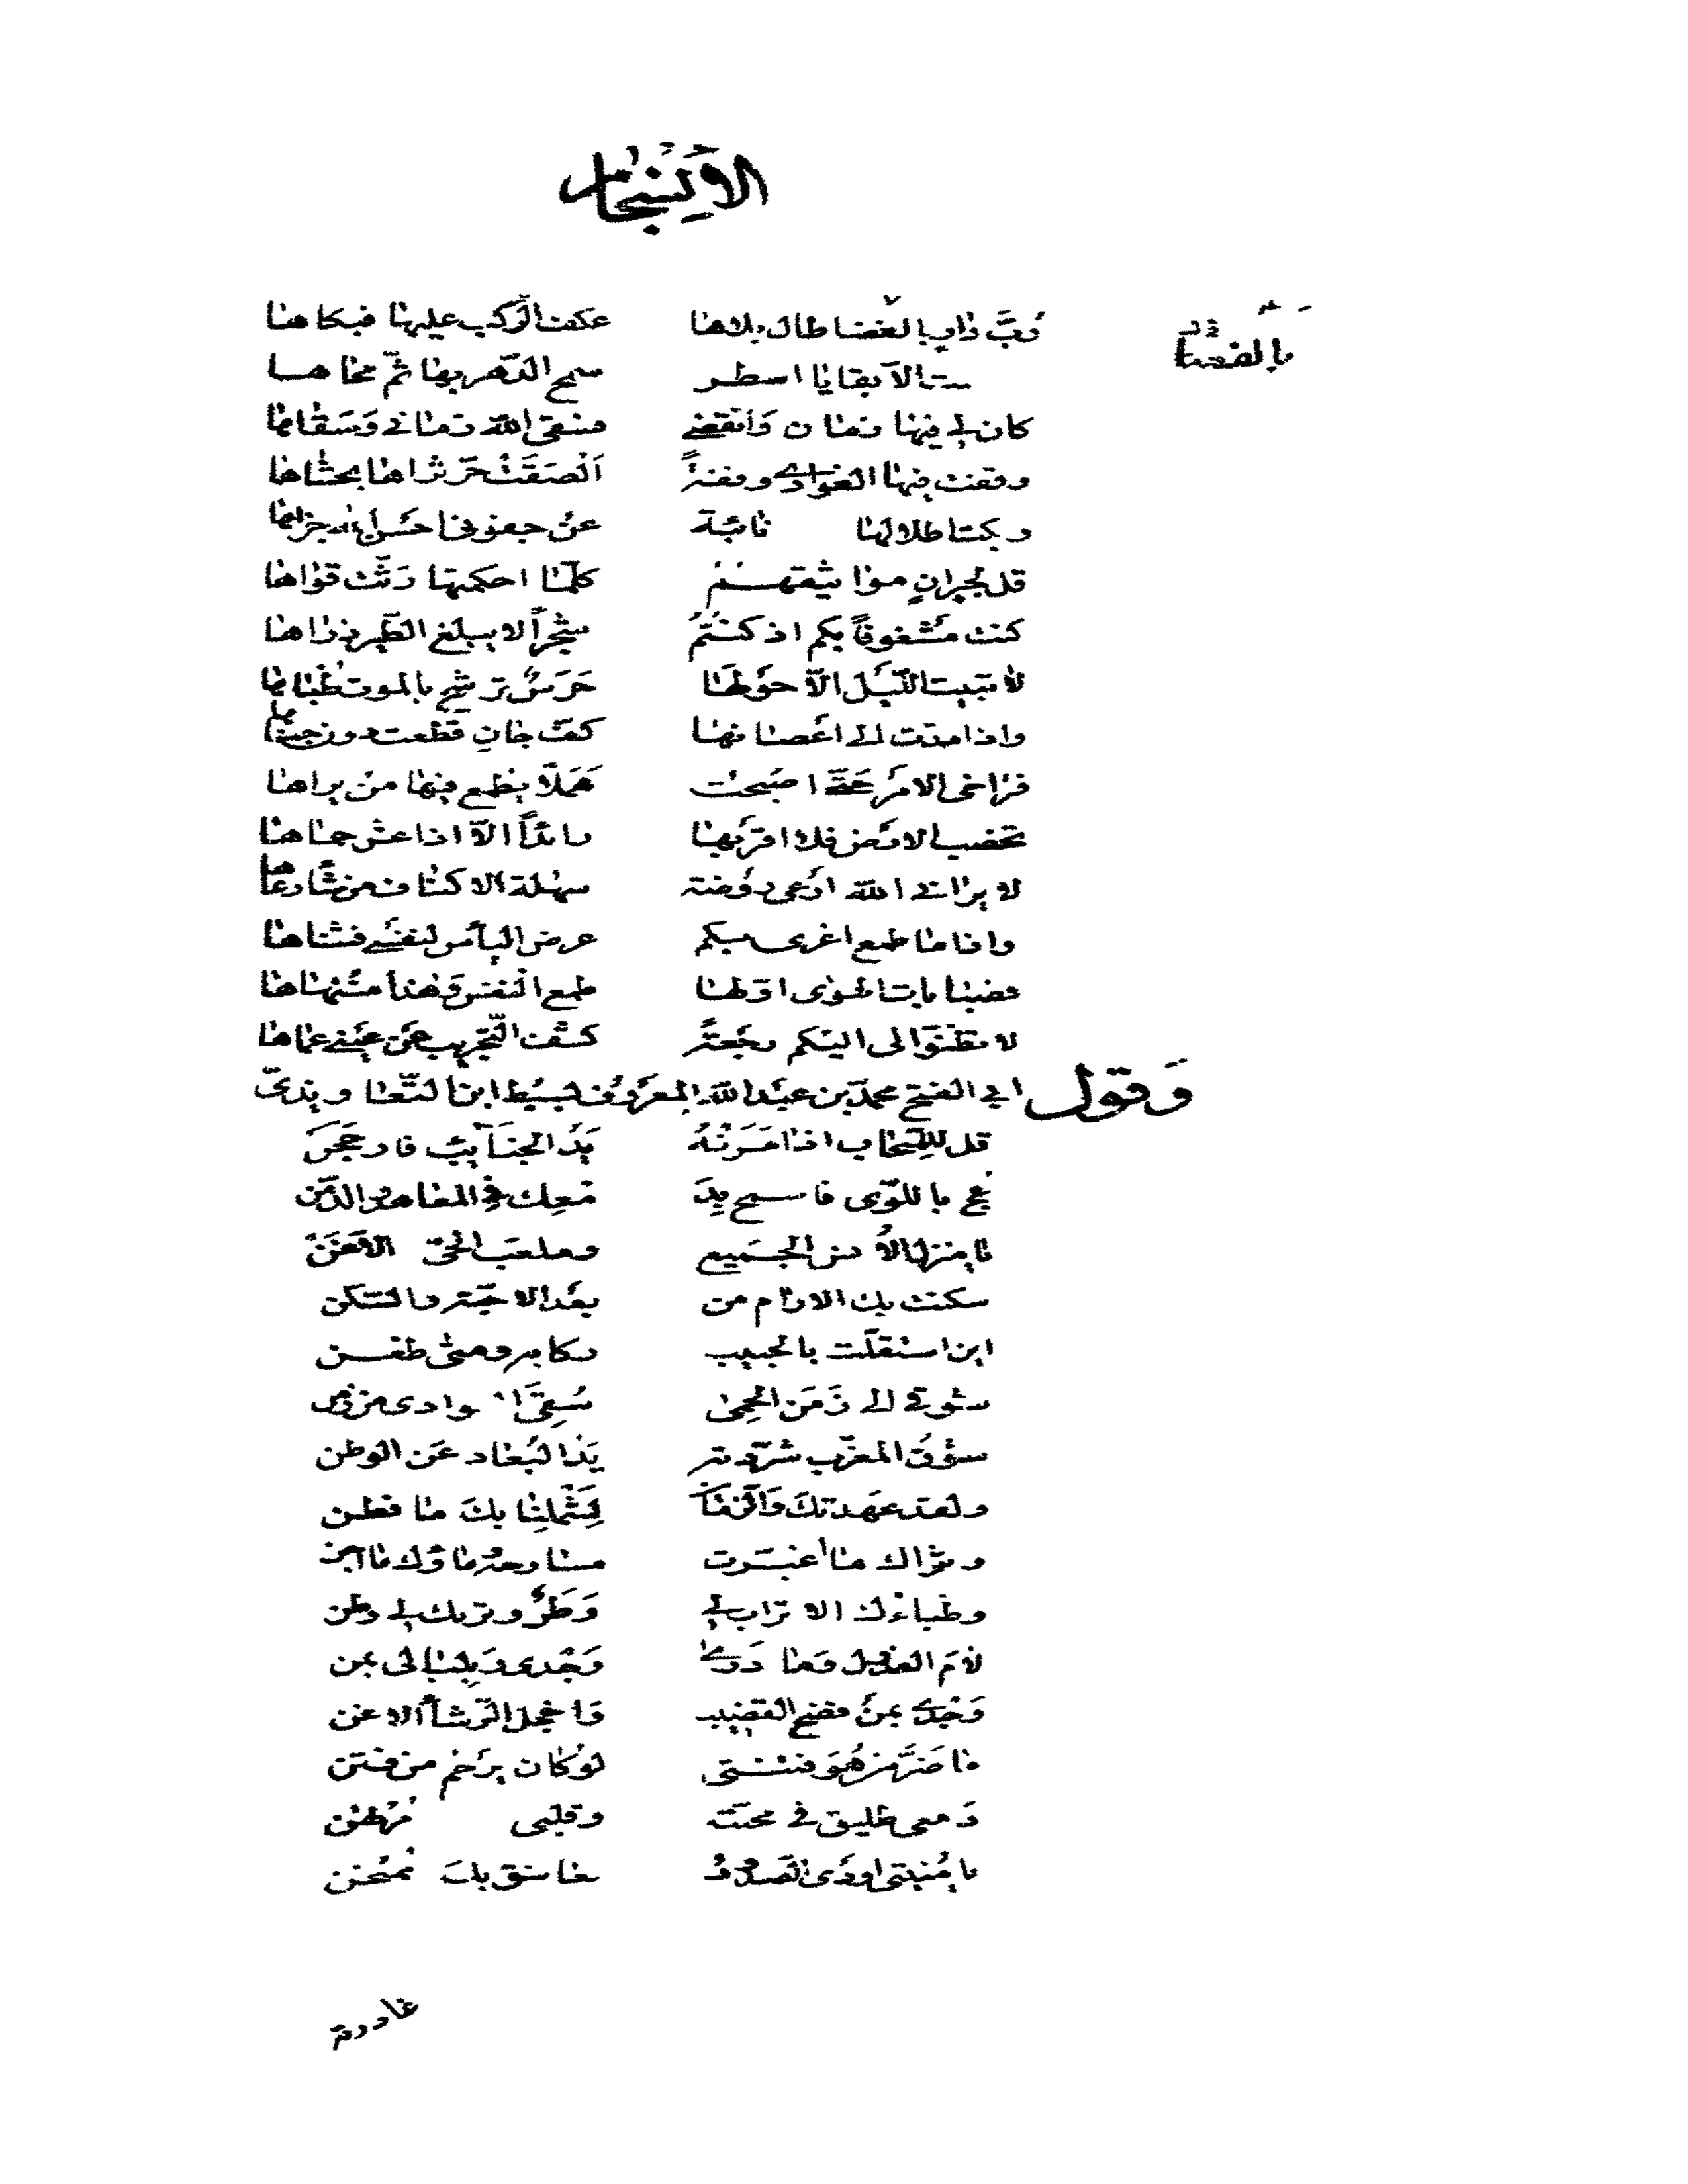 الانسجام
رُبَّ دار بالغضا طال بلاها عكف الركب عليها فبكاها
بالغضا
الا بقايا اسطر سمح الدهر بها ثمّ محاها
كان لي فيها زمان وانقضى فسقى الله زماني وسقاها
وقفت فيها الغوادى وقفةً الصَقَتْ حرّ ثراها بحشاها
وبكت اطلالها نائبة عن جفونى احسن الله جزاها
قل لجيرانٍ مواثيقهم كلّما احكمتها رثّت قواها
كنت مشغوفاً بكم اذ كنتمُ شجراً لا يبلغ الطير ذراها
لا تبيت الليل الاّ حولها حَرَسٌ ترشح بالموت ظباها
واذا مدّت الى اغصانها كفّ جانٍ قطعت دون جناها
فتراخى الامر حتّى اصبحت هَمَلاً يطمع فيها من يراها
تخصب الارض فلا اقربها رائداً الاّ اذا عزّ حماها
لا يرانى الله ارعى روضة سهلة الاكناف من شا رعاها
واذا ما طمع اغرى بكم عرض اليأس لنفسى فثناها
فصبابات الهوى اوّلها طمع النفس وهذا منتهاها
لا تظنّوا لى اليكم رجعةً كشف التجريب عن عينى عماها
وقول ابي الفتح محمد بن عبد الله المعروف بسبط ابن التعاويذىّ
قل للسّحاب اذا مَرَتْهُ يَدُ الجنَائب فارجحنّ
عج باللوى فاسمح بِدَ معك فى المعاهد والدّمن
يا منزل الانس الجميع وملعب الحىّ الاغنّ
سكنت بك الارام من بعد الاحبّة والسّكن
اين استقلّت بالحبيب ركابه ومتى ظعن
شوقى الى زَمَن الحِمىٰ سُقِىَ ا وادى من زمن
شوق المغرّب شرّدته يَدُ البُعاد عَن الوطن
ولقد عهدتك والزمان لِشَملِنا بك ما فطن
وثراك ما اغبرّت مسارحه وماؤك ما اجن
وظباؤك الاتراب لي وَطَرٌ وتربك لي وطن
لامَ العذول وما درى وَجْدى وَبلبالى بمن
وَجْدى بمن فضح القضيب واخجل الرّشأ الاغن
ما ضرّ من هُوَ فتنتى لو كان يرحم من فتن
دمعى طليق فى محبّته وقلبى مرتهن
يا مُنيتى اودى الصدود بعاشق بك ممتحن
غادرته